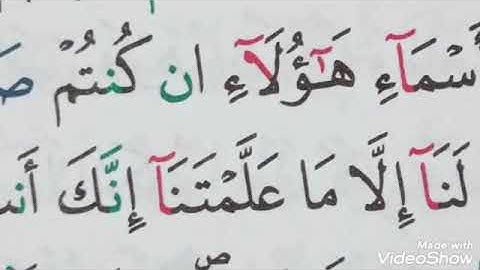 أَسْمَآءِ هَٰٓؤُلَآءِ ان كُنتُمْ
لَنَآ إِلَّا مَا عَلَّمْتَنَآ إِنَّكَ
Made with
VideoShow